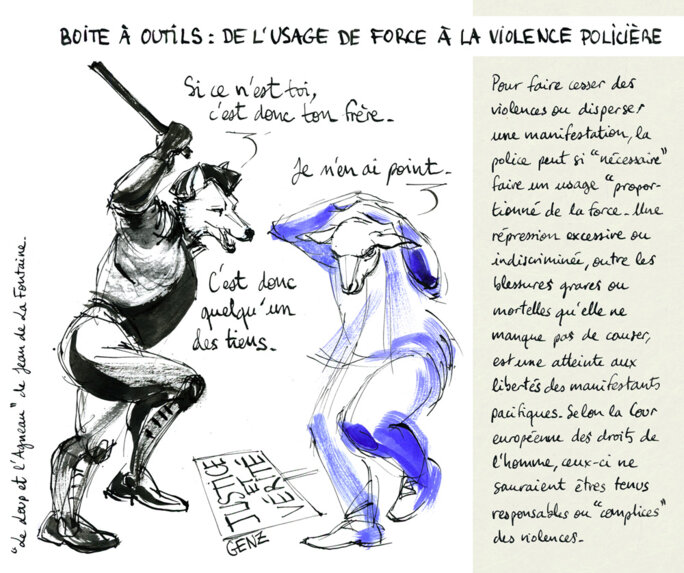 BOITE À OUTILS : DE L'USAGE DE FORCE À LA VIOLENCE POLICIÈRE
Si ce n'est toi,
c'est donc ton frère.
Je n'en ai point.
C'est donc
quelqu'un
des tiens.
"Le Loup et l'Agneau" de Jean de La Fontaine.
JUSTICE
ET
VÉRITÉ
GENZ
Pour faire cesser des
violences ou disperser
une manifestation, la
police peut si "nécessaire"
faire un usage "propor-
tionné de la force. Une
répression excessive ou
indiscriminée, outre les
blessures graves ou
mortelles qu'elle ne
manque pas de causer,
est une atteinte aux
libertés des manifestants
pacifiques. Selon la Cour
européenne des droits de
l'homme, ceux-ci ne
sauraient êtres tenus
responsables ou "complices"
des violences.